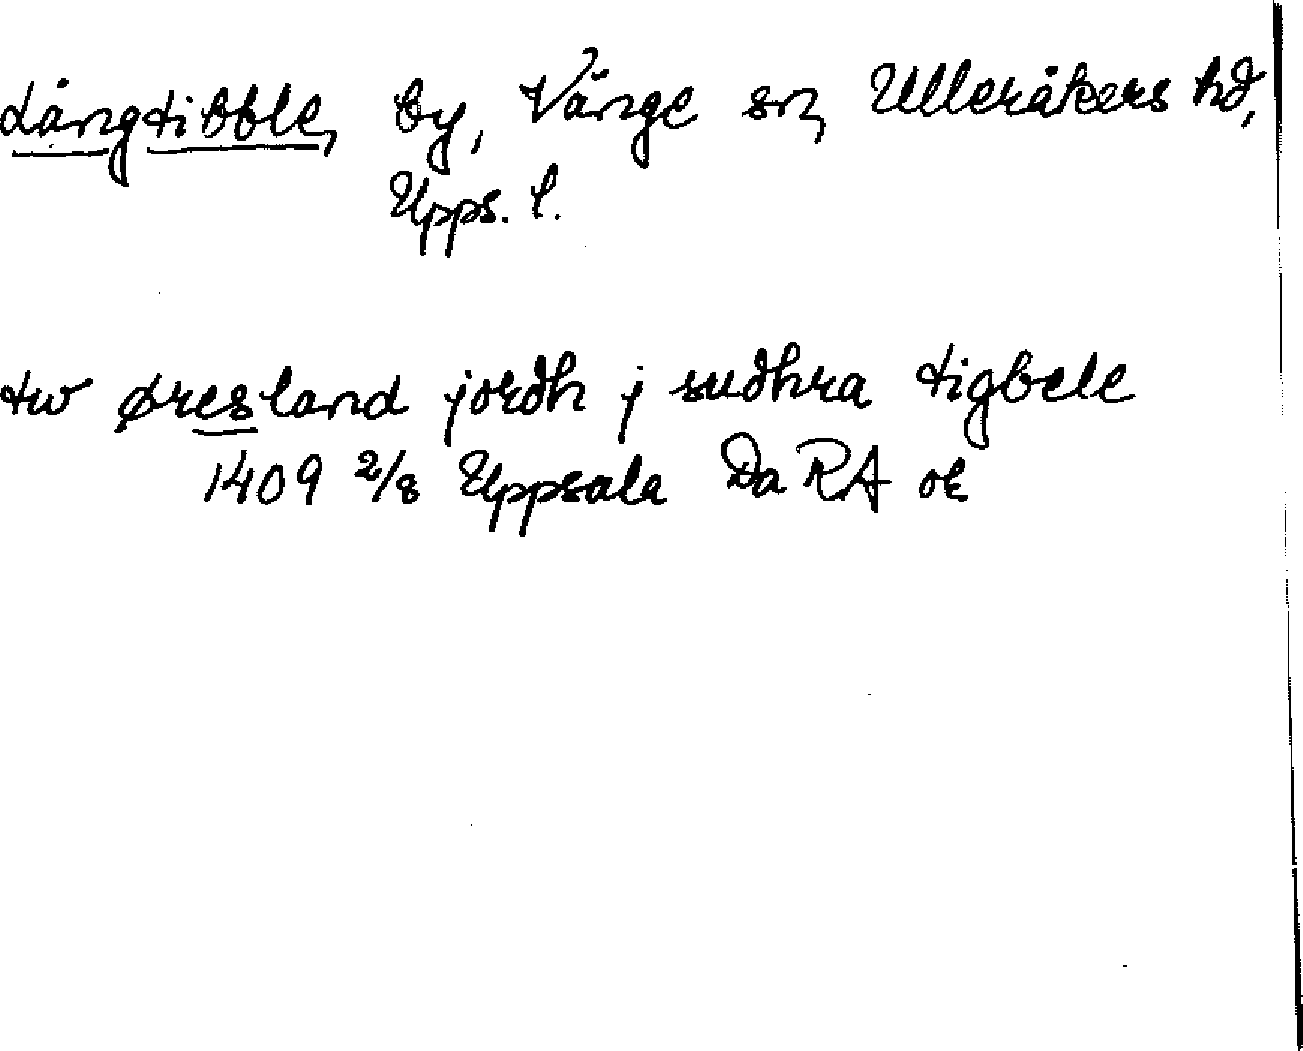 Långtibble, by, Vänge sn, Ulleråkers hd,
Upps. l.
tw øresland jordh j sudhra tigbele
1409 2/8 Uppsala Da RA or